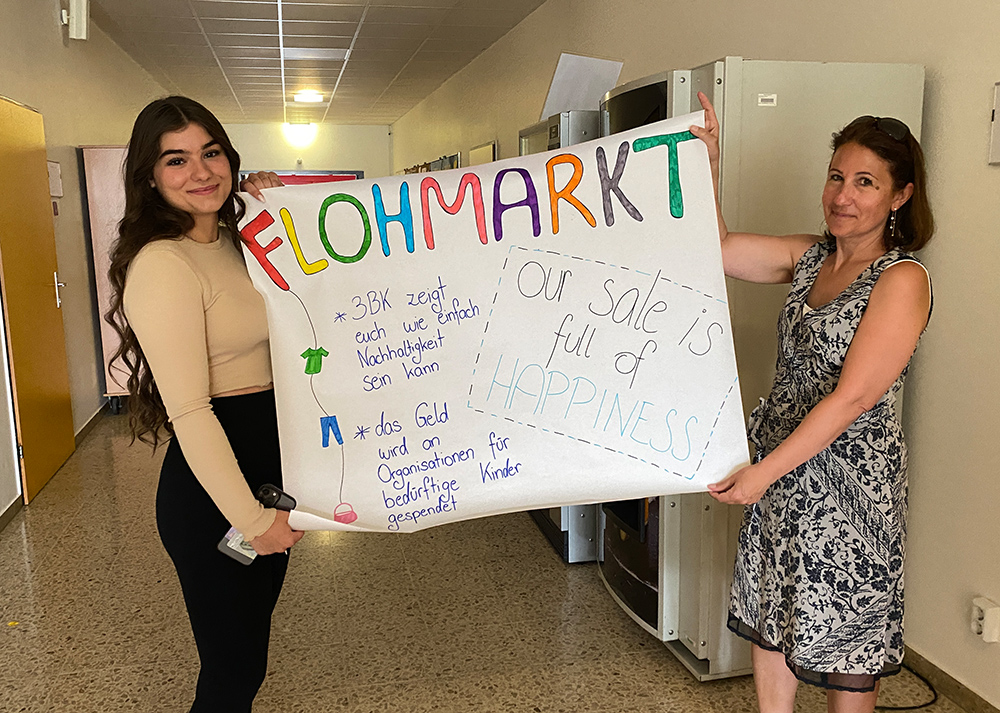 FLOHMARKT
* 3BK zeigt
euch wie einfach
Nachhaltigkeit
sein kann
* das Geld
wird an
Organisationen für
bedürftige Kinder
gespendet
our sale is
full of
HAPPINESS